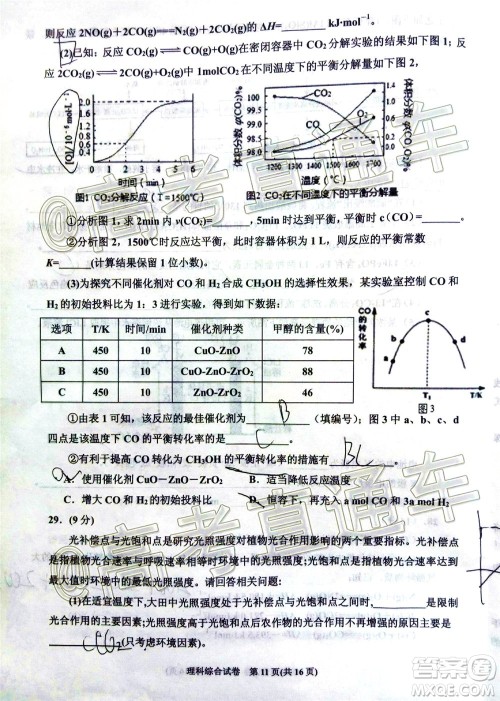 则反应 2NO(g)+2CO(g)===N₂(g)+2CO₂(g)的 ΔH=________ kJ·mol⁻¹。
(2)已知：反应 CO₂(g)⇌CO(g)+O(g)在密闭容器中 CO₂分解实验的结果如下图 1；反
应 2CO₂(g)⇌2CO(g)+O₂(g)中 1molCO₂在不同温度下的平衡分解量如下图 2，
[O]/10⁻⁶mol·L⁻¹
2.0
1.5
1.0
0.5
0 1 2 3 4 5 6
时间(min)
图1 CO₂分解反应(T=1500℃)
体积分数φ(CO₂)%
100
99.5
99.0
98.5
98.0
1200 1300 1400 1500 1600 1700
温度(℃)
CO₂
CO
O₂
图2 CO₂在不同温度下的平衡分解量
①分析图 1，求 2min 内 v(CO₂)=________，5min 时达到平衡，平衡时 c(CO)=________。
②分析图 2，1500℃时反应达平衡，此时容器体积为 1 L，则反应的平衡常数
K=________(计算结果保留 1 位小数)。
(3)为探究不同催化剂对 CO 和 H₂合成 CH₃OH 的选择性效果，某实验室控制 CO 和
H₂的初始投料比为 1：3 进行实验，得到如下数据：
选项 T/K 时间/min 催化剂种类 甲醇的含量(%)
A 450 10 CuO-ZnO 78
B 450 10 CuO-ZnO-ZrO₂ 88
C 450 10 ZnO-ZrO₂ 46
CO的转化率
a b c d
T₁ T/K
图 3
①由表 1 可知，该反应的最佳催化剂为 B （填编号）；图 3 中 a、b、c、d
四点是该温度下 CO 的平衡转化率的是 C 。
②有利于提高 CO 转化为 CH₃OH 的平衡转化率的措施有 BC
A．使用催化剂 CuO－ZnO－ZrO₂ B．适当降低反应温度
C．增大 CO 和 H₂的初始投料比 D．恒容下，再充入 a mol CO 和 3a mol H₂
29．(9 分)
光补偿点与光饱和点是研究光照强度对植物光合作用影响的两个重要指标。光补偿点
是指植物光合速率与呼吸速率相等时环境中的光照强度，光饱和点是指植物光合速率达到
最大值时环境中的最小光照强度。请回答相关问题：
(1)在适宜温度下，大田中光照强度处于光补偿点与光饱和点之间时，________是限
制光合作用的主要因素。光照强度超过光饱和点后农作物光合作用的主要限制因素是
CO₂ (只考虑环境因素)。
理科综合试卷 第 11 页(共 16 页)
@高考直通车
高考直通车